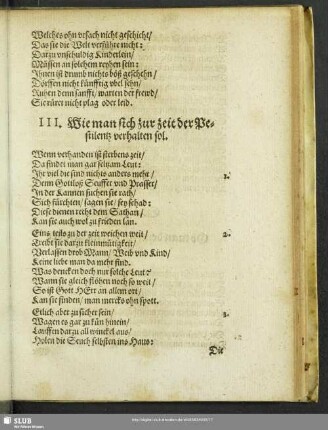 Welches ohn vrsach nicht geschicht/
Das sie die Welt verführe nicht:
Darzu vnschuldig Kinderlein/
Müssen an solchem reyhen sein:
Ihnen ist drumb nichts böß geschehn/
Dörffen nicht künfftig vbel sehn/
Ruhen denn sanfft/ warten der frewd/
Sie rüret nicht plag oder leid.
III. Wie man sich zur zeit der Pe-
stilentz verhalten sol.
Wenn verhanden ist sterbens zeit/
Da findet man gar seltzam Leut:
Ihr viel die sind nichts anders mehr/ 1.
Denn Gottloß Seuffer vnd Prasser/
In der Kannen suchen sie rath/
Sich fürchten/ sagen sie/ sey schad:
Diese dienen recht dem Sathan/
Kan sie auch wol zu frieden lan.
Eins teils zu der zeit weichen weit/ 2.
Treibt sie darzu kleinmütigkeit/
Verlassen drob Mann/ Weib vnd Kind/
Keine liebe man da mehr find.
Was dencken doch nur solche Leut?
Wann sie gleich flöhen noch so weit/
So ist Gott HErr an allem ort/
Kan sie finden/ man mercks ohn spott.
Etlich aber zu sicher sein/ 3.
Wagen es gar zu kün hinein/
Lauffen dar zu all winckel aus/
Holen die Seuch selbsten ins Haus:
Die
SLUB